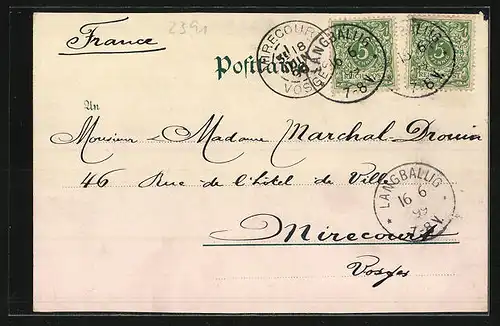 2391
France
MIRECOURT
18
JUIN
99
VOSGES
LANGBALLIG
16 6
7-8V.
5
5
16 6
7-8V.
Postkarte
An
Monsieur & Madame Marchal-Drouin
46 Rue de l'hôtel de Ville
LANGBALLIG
16 6
99
7-8V.
Mirecourt
Vosges